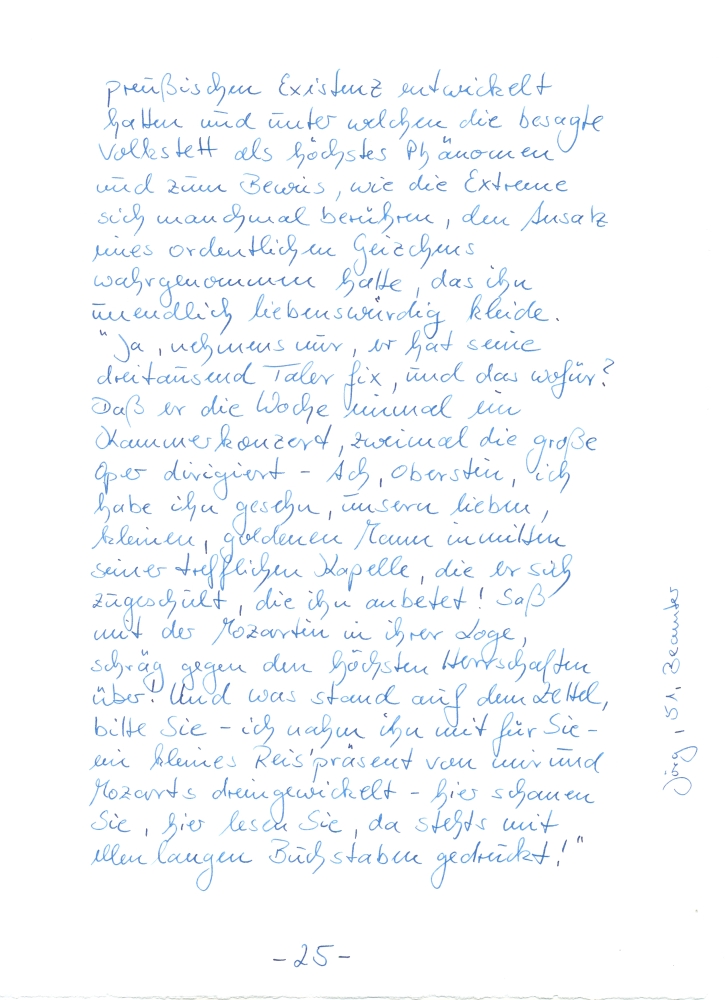 preußischen Existenz entwickelt
hatten und unter welchen die besagte
Volkstett als höchstes Phänomen
und zum Beweis, wie die Extreme
sich manchmal berühren, den Ansatz
eines ordentlichen Geizchens
wahrgenommen hatte, das ihn
unendlich liebenswürdig kleide.
"Ja, nehmens nur, er hat seine
dreitausend Taler fix, und das wofür?
Daß er die Woche einmal ein
Kammerkonzert, zweimal die große
Oper dirigiert - Ach, Oberstin, ich
habe ihn gesehn, unsern lieben,
kleinen, goldenen Mann inmitten
seiner trefflichen Kapelle, die er sich
zugeschult, die ihn anbetet! Saß
mit der Mozartin in ihrer Loge,
schräg gegen den höchsten Herrschaften
über! Und was stand auf dem Zettel,
bitte Sie - ich nahm ihn mit für Sie -
ein kleines Reis'präsent von mir und
Mozarts dreingewickelt - hier schauen
Sie, hier lesen Sie, da stehts mit
ellenlangen Buchstaben gedruckt!"
Jörg, 51, Beamter
-25-